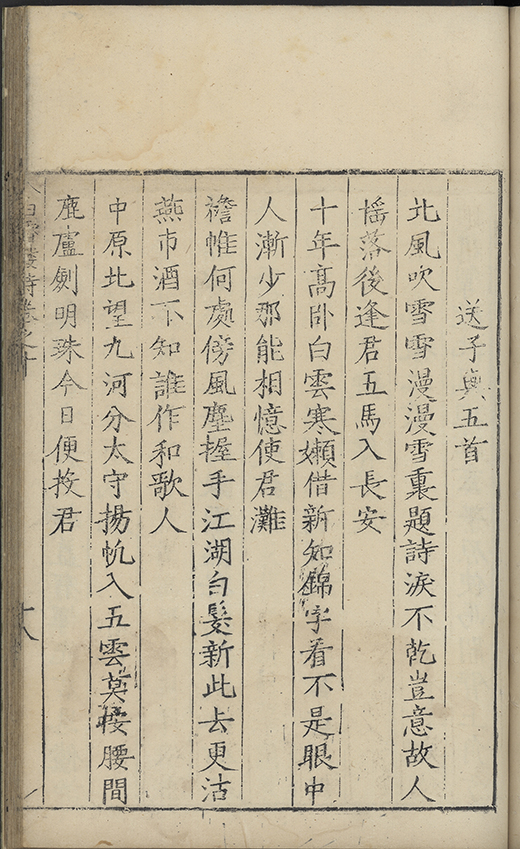 送子與五首
北風吹雪雪漫漫雪裏題詩淚不乾豈意故人
搖落後逢君五馬入長安
十年高卧白雲寒嬾借新知錦字看不是眼中
人漸少那能相憶使君灘
襜帷何處傍風塵握手江湖白髮新此去更沽
燕市酒不知誰作和歌人
中原北望九河分太守揚帆入五雲莫按腰間
鹿盧劍明珠今日便投君